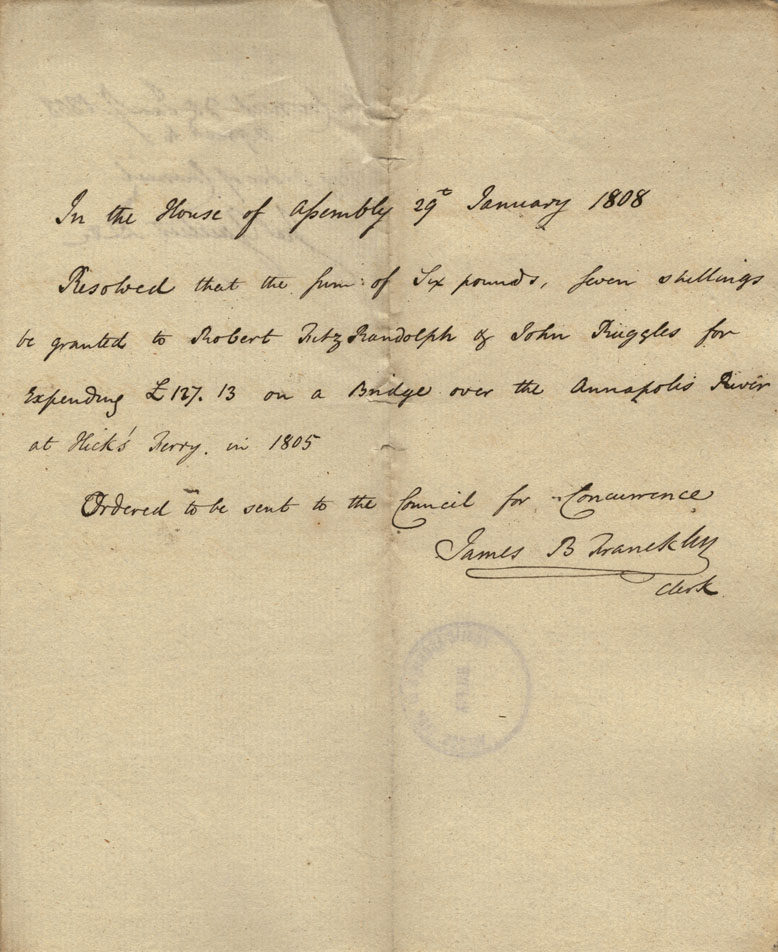 In the House of Assembly 29th January 1808
Resolved that the sum of Six pounds, seven shillings
be granted to Robert FitzRandolph & John Ruggles for
Expending £127.13 on a Bridge over the Annapolis River
at Hick's Ferry. in 1805
Ordered to be sent to the Council for Concurrence
James B Franckly
Clerk